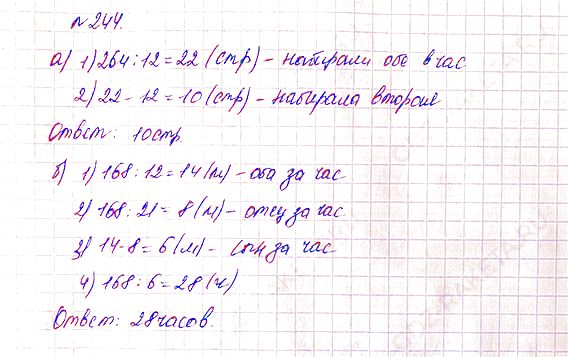 № 244.
а) 1) 264 : 12 = 22 (стр) – набирали обе в час
2) 22 – 12 = 10 (стр) – набирала вторая
Ответ: 10 стр.
б) 1) 168 : 12 = 14 (м) – оба за час
2) 168 : 21 = 8 (м) – отец за час
3) 14 - 8 = 6 (м) – сын за час
4) 168 : 6 = 28 (ч)
Ответ: 28 часов.